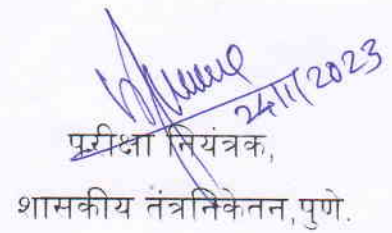 24/11/2023
परीक्षा नियंत्रक,
शासकीय तंत्रनिकेतन,पुणे.